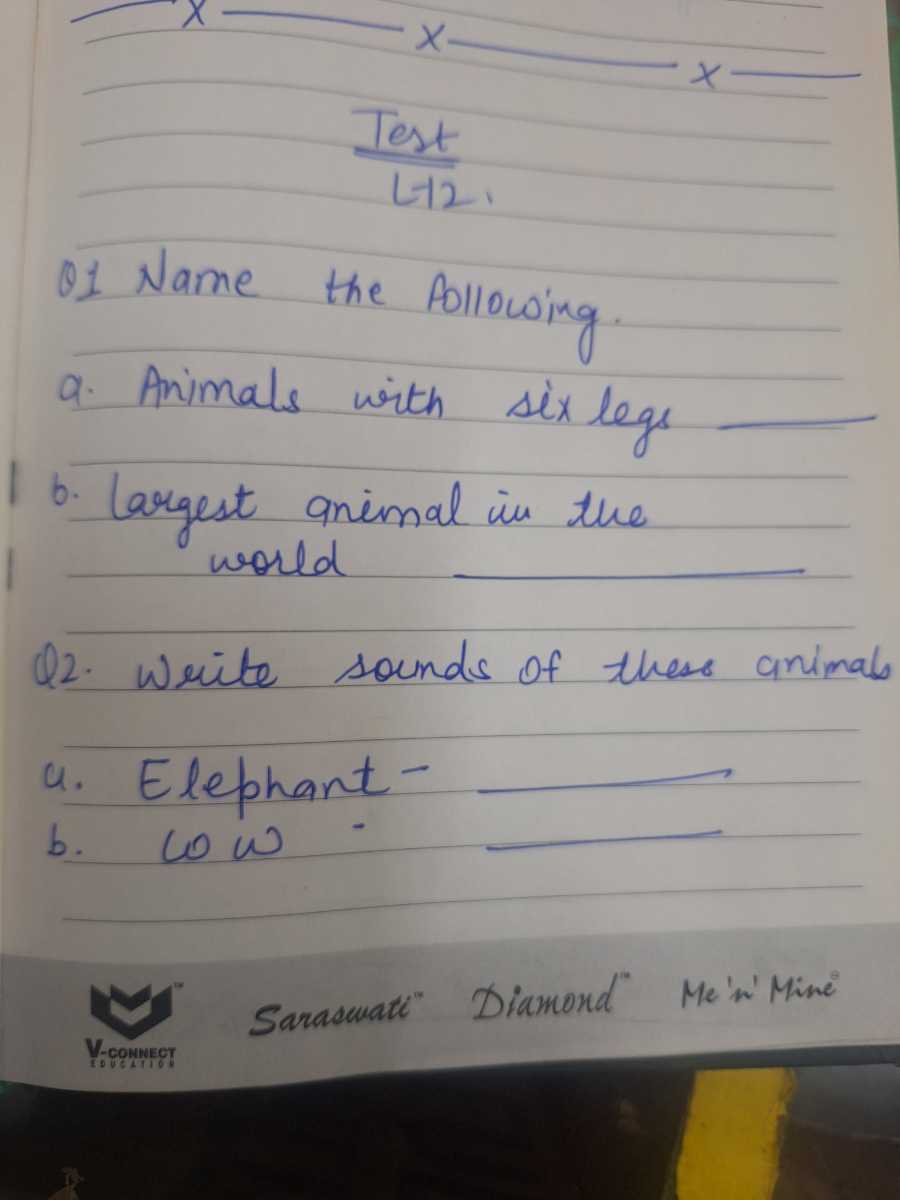 x x x
Test
L-12.
Q1 Name the following.
a. Animals with six legs
b. largest animal in the
world
Q2. Write sounds of these animals
a. Elephant -
b. cow -
V-CONNECT
EDUCATION
Saraswati™ Diamond™ Me 'n' Mine®